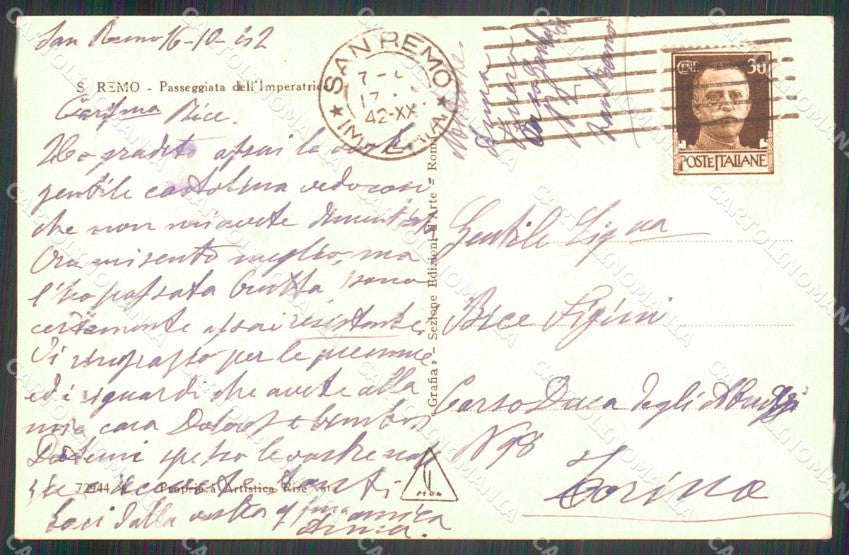 San Remo 16-10-42
S. REMO - Passeggiata dell'Imperatrice
Carissima Bice.
Ho gradito assai la vostra
gentile cartolina vedo con
che non mi avete dimenticat
Ora mi sento meglio, ma
l'ho passata brutta, sono
certamente assai resistente.
Vi ringrazio per le premure
ed i riguardi che avete alla
mia cara e bimbi
Datemi spesso le vostre no
tizie tanti
baci dalla vostra aff.ma amica
Anna
72944 Proprietà Artistica Riservata
Grafia - Sezione Edizioni d'Arte - Roma
SAN REMO
17
42-XX
Mittente
Anna
San Remo
30
POSTE ITALIANE
Gentile Sig.na
Bice Figini
Corso Duca degli Abruzzi
N 98
Torino
CARTOLINOMANIA